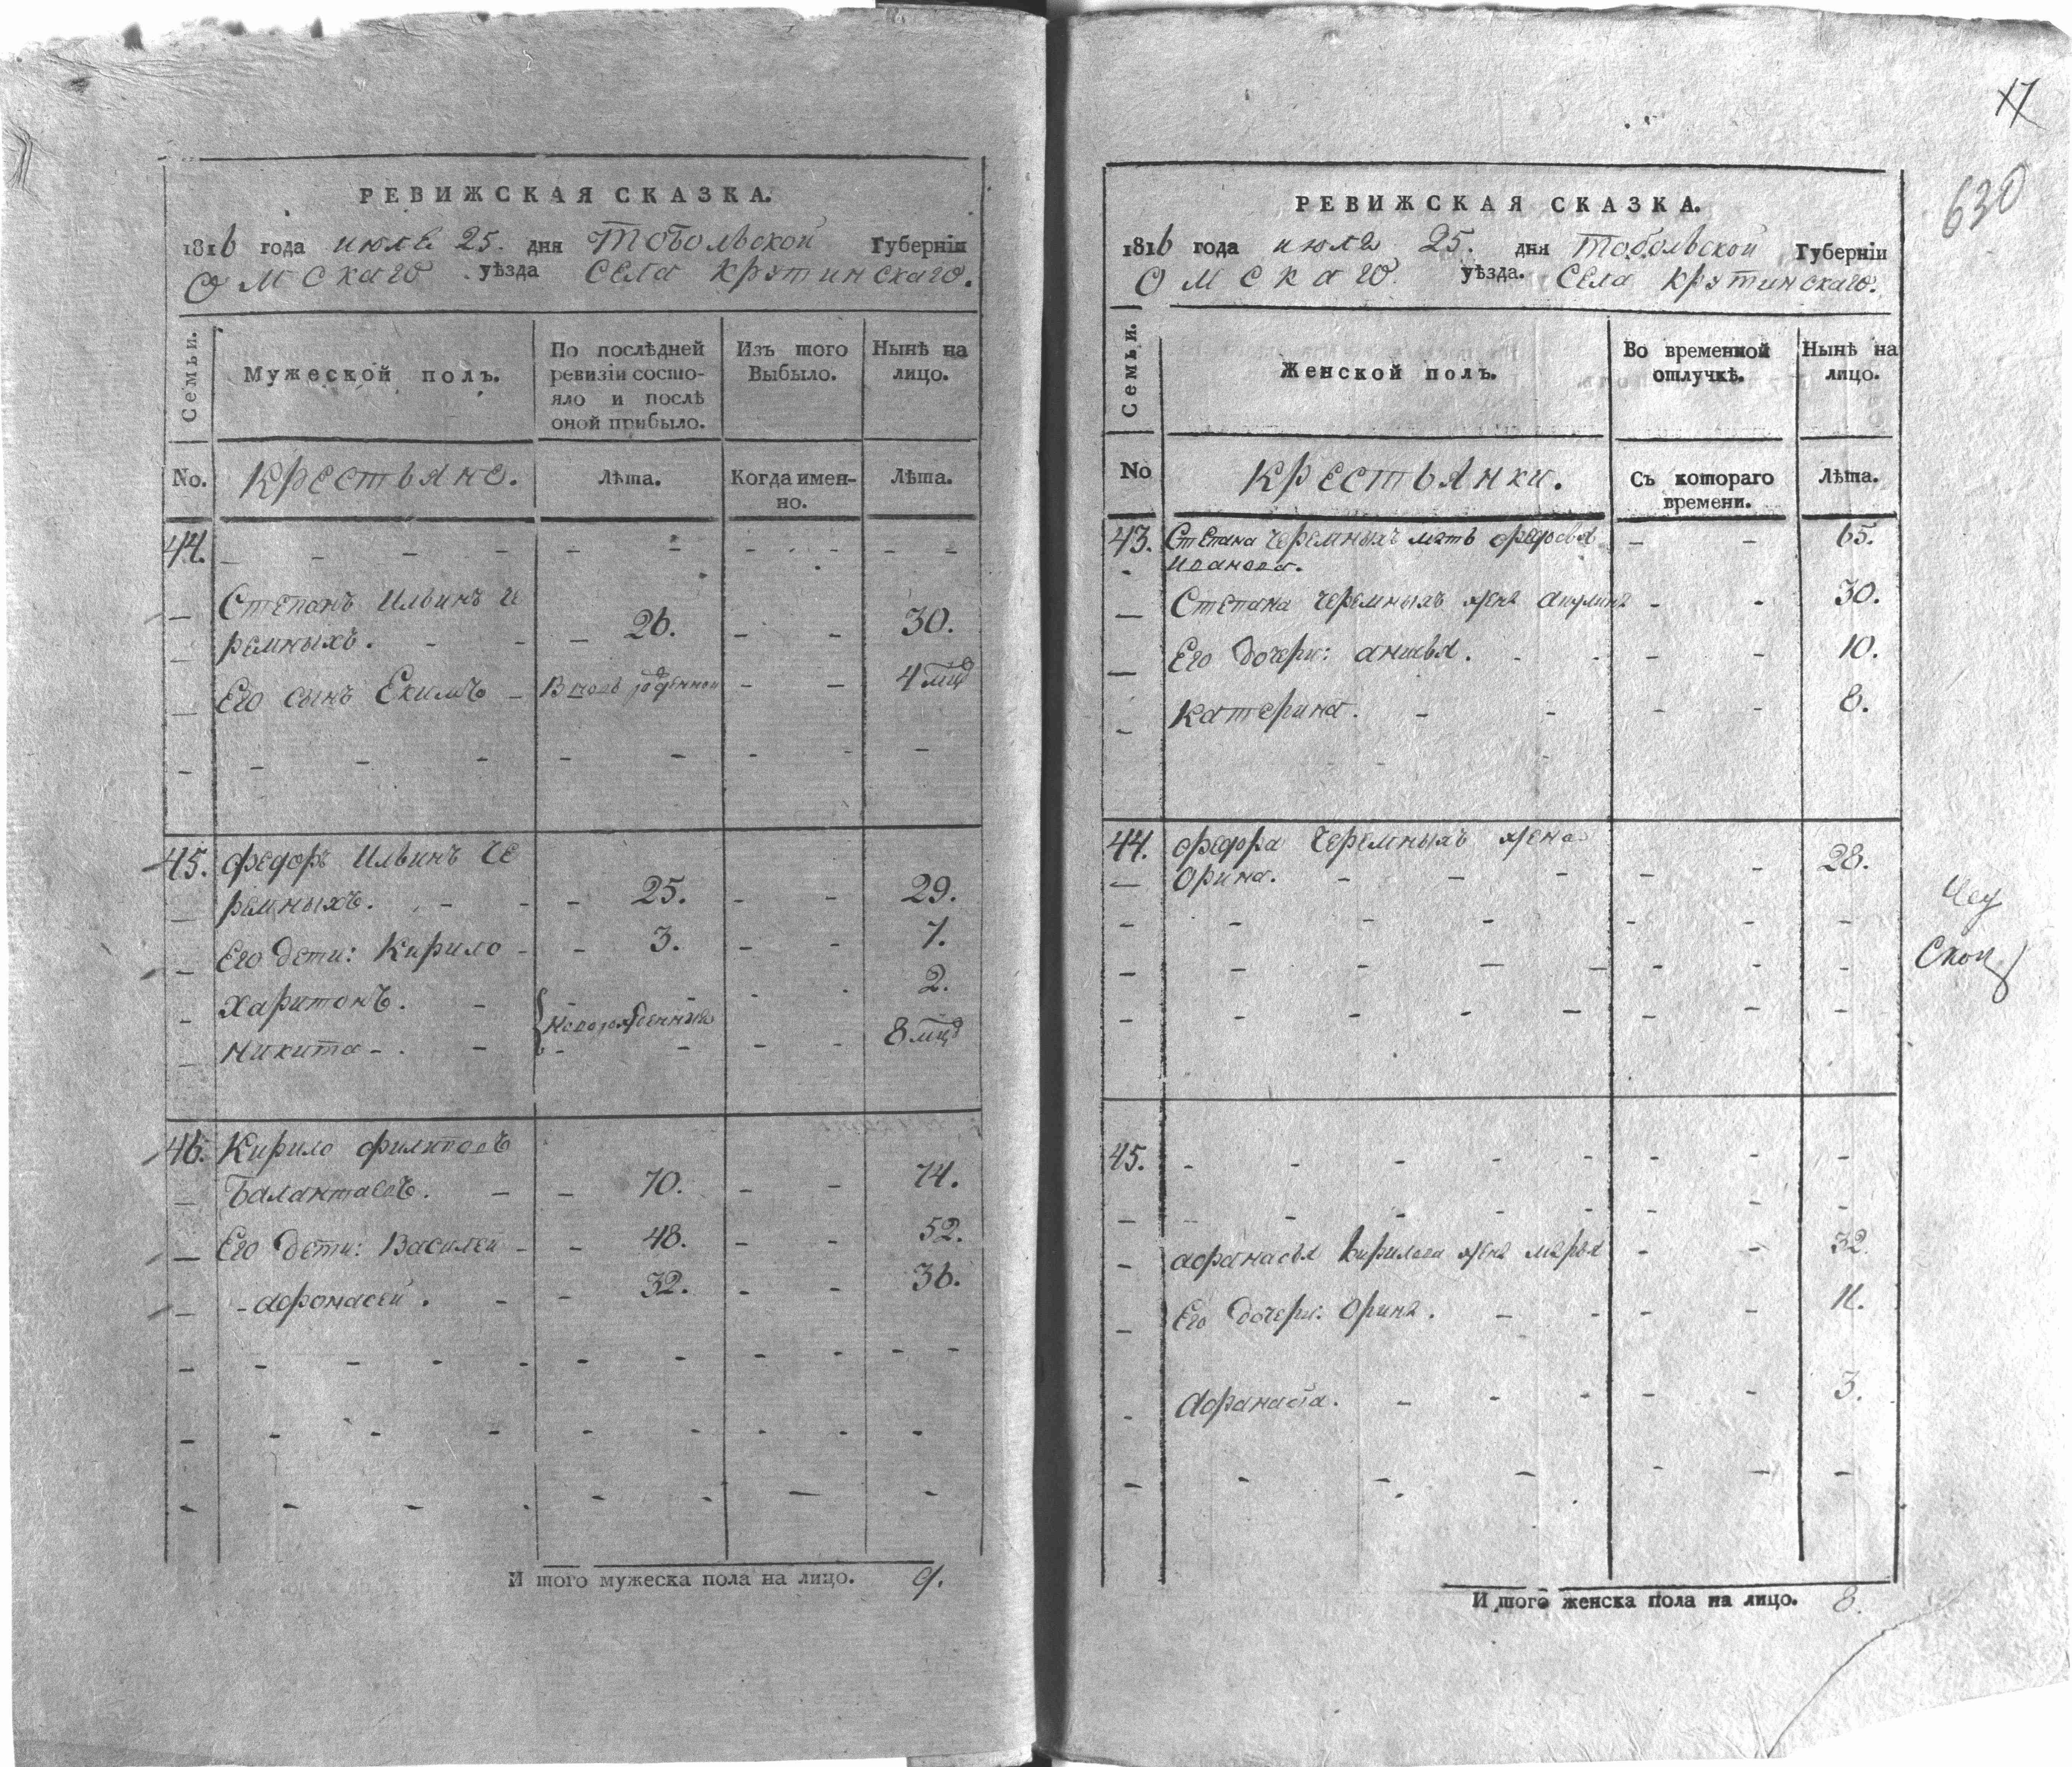 РЕВИЖСКАЯ СКАЗКА.
1816 года июля 25. дня Тобольской Губерніи
Омскаго уѣзда Села Крутинскаго.
Семьи.
Мужеской полъ.
По послѣдней ревизіи состо-
яло и послѣ
оной прибыло.
Изъ того Выбыло.
Нынѣ на лицо.
No. Крестьяне. Лѣта. Когда имен-
но. Лѣта.
44. - - - - - - - - -
Степанъ Ильинъ Че
ремныхъ. - - - 26. - - 30.
Его сынъ Екимъ - Вновь рожденной - - 4 мцд
- - - - - - - - -
45. Федоръ Ильинъ Че
ремныхъ. - - - 25. - - 29.
Его дети: Кирило - - 3. - - 7.
Харитонъ. - - - 2.
Новорожденные
Никита - - - - - - 8 мцд
46. Кирило Филиповъ
Балантаевъ. - - 70. - - 74.
Его дети: Василей - - 48. - - 52.
- Афонасей. - - 32. - - 36.
И того мужеска пола на лицо. 9.
17
630
РЕВИЖСКАЯ СКАЗКА.
1816 года июля 25. дня Тобольской Губерніи
Омскаго уѣзда. Села Крутинскаго.
Семьи.
Женской полъ.
Во временной отлучкѣ.
Нынѣ на лицо.
No Крестьянки. Съ котораго
времени. Лѣта.
43. Степана Черемныхъ мать Федосья - - 65.
Иванова.
Степана Черемныхъ жена Акулина - - 30.
Его дочери: Анисья. - - - - 10.
Катерина. - - - - 8.
44. Федора Черемныхъ жена
Орина. - - - - - 28.
Скоп
45. - - - - - - -
Афанасья Кирилова жена Марья - - 32.
Его дочери: Орина. - - - - 11.
Афанасія. - - - - - 3.
И того женска пола на лицо. 8.